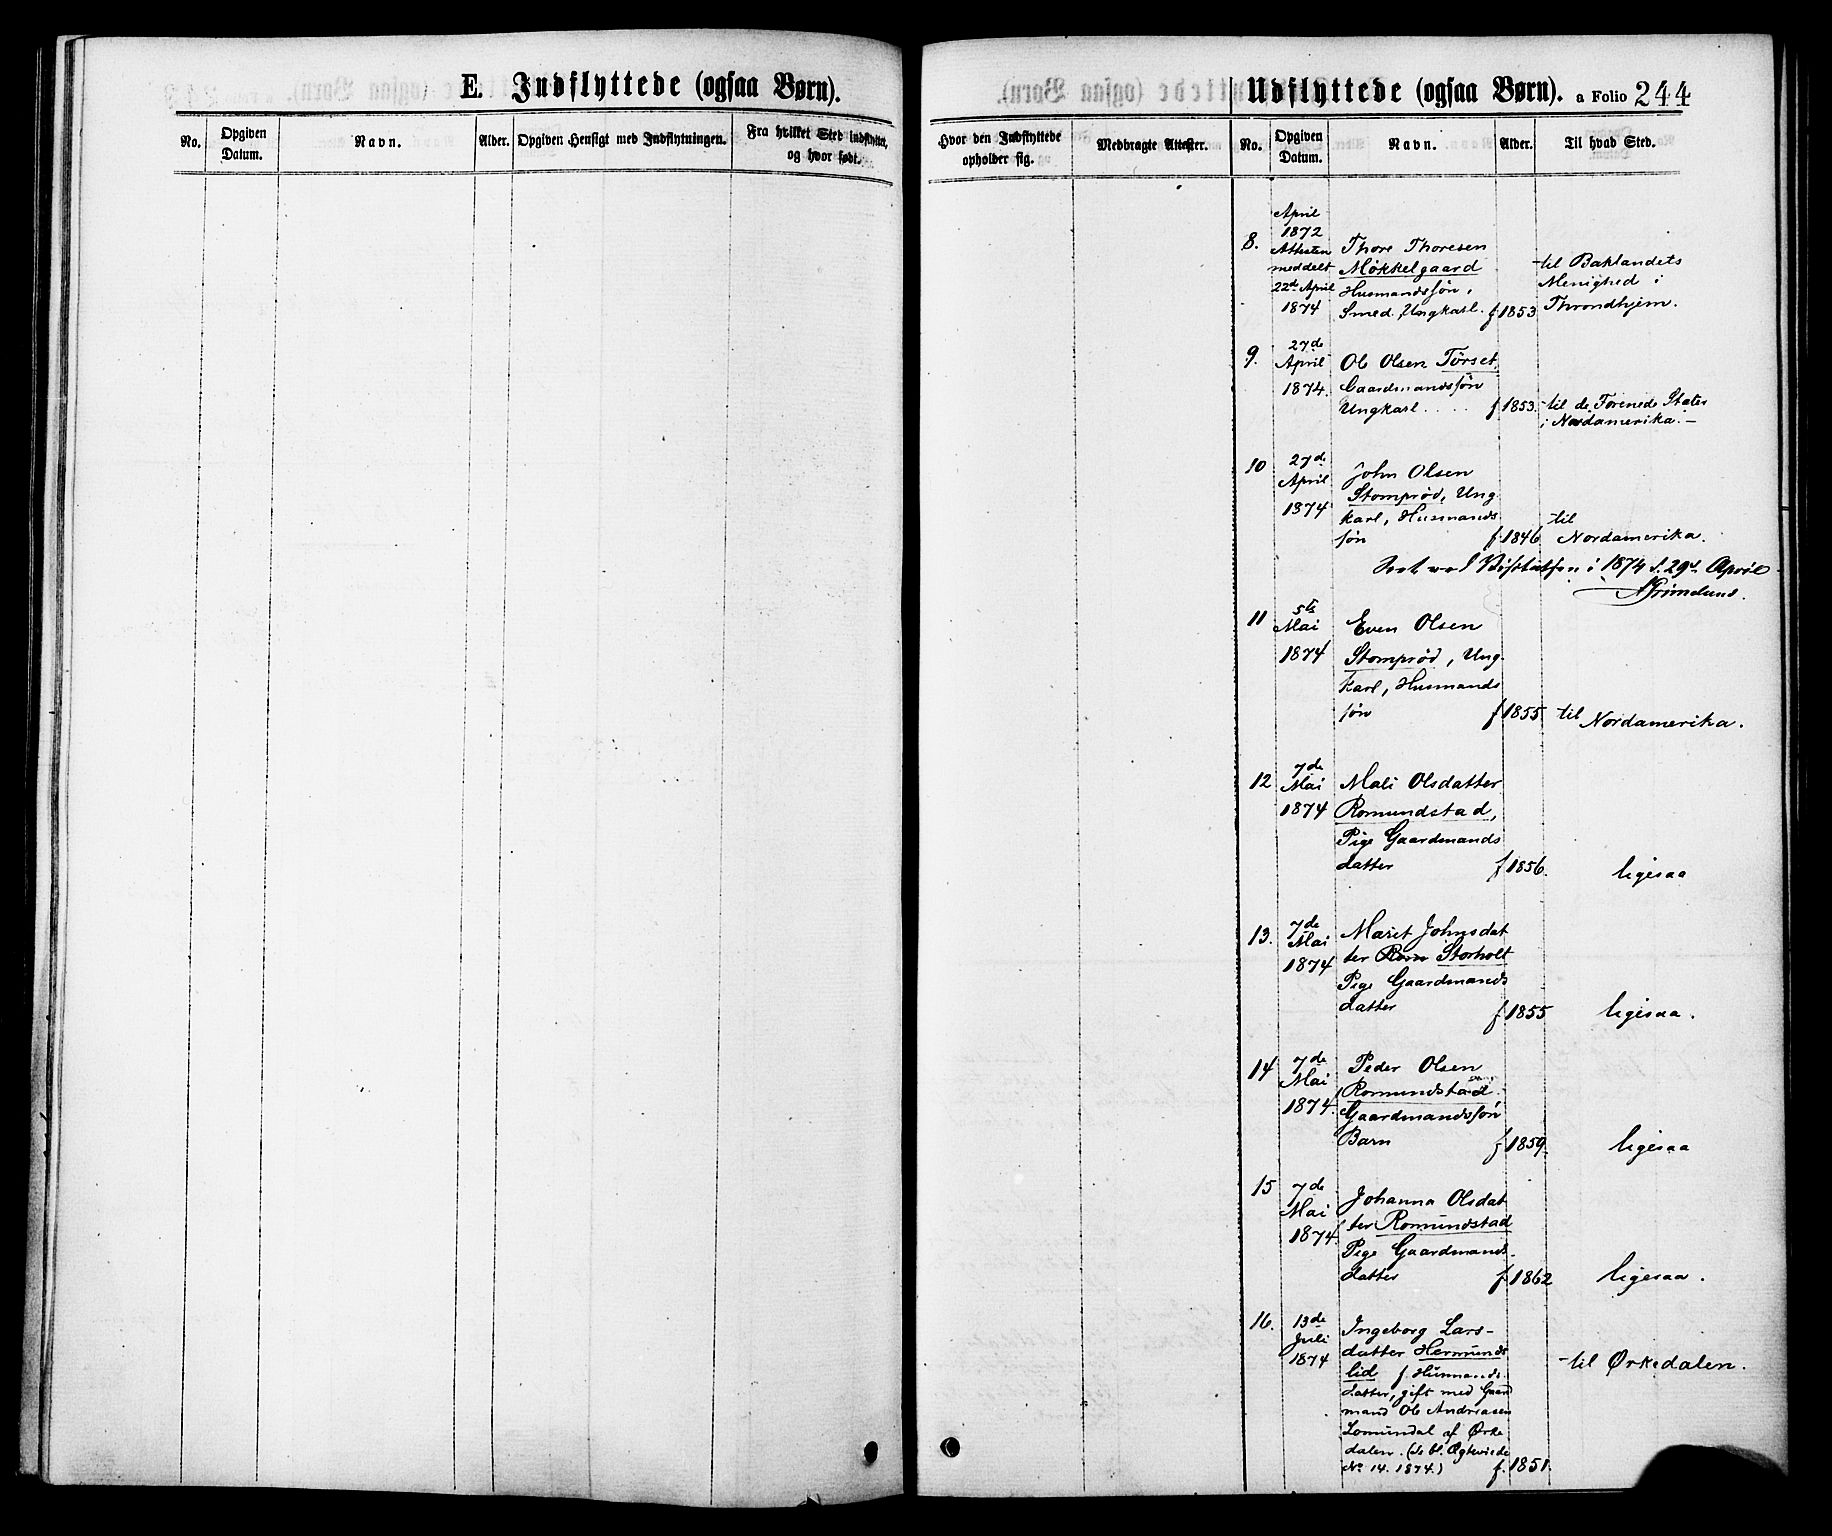 E. Indflyttede (ogsaa Børn).
No.
Opgiven
Datum.
Navn.
Alder.
Opgiven Hensigt med Indflytningen.
Fra hvilket Sted indflyttet,
og hvor født.
Udflyttede (ogsaa Børn). a Folio 244
Hvor den Indflyttede
opholder sig.
Medbragte Attester.
No.
Opgiven
Datum.
Navn.
Alder.
Til hvad Sted.
8.
April
1872
Attesten
meddelt
22de April
1874
Thore Thoresen
Møkkelgaard
Husmandssøn,
Smed, Ungkarl. f. 1853
til Baklandets
Menighed i
Throndhjem.
9.
27de
April
1874.
Ole Olsen Tørset,
Gaardmandssøn
Ungkarl .... f 1853.
til de Forenede Stater
i Nordamerika.-
10
27de
April
1874
John Olsen
Stomprød, Ung
karl, Husmands
søn f. 1846
til
Nordamerika.
i 1874 d. 29d April
11
5te
Mai
1874
Even Olsen
Stomprød, Ung-
karl, Husmands
søn f 1855.
til Nordamerika.
12
7de
Mai
1874
Mali Olsdatter
Romundstad,
Pige Gaardmands
datter f 1856.
ligesaa
13.
7de
Mai
1874
Marit Johnsdat
ter Storholt
Pige Gaardmands
datter f. 1855
ligesaa.
14
7de
Mai
1874.
Peder Olsen
Romundstad
Gaardmandssøn
Barn f 1859.
ligesaa
15
7de
Mai
1874.
Johanna Olsdat
ter Romundstad
Pige Gaardmands-
datter f. 1862
ligesaa.
16.
13de
Juli
1874
Ingeborg Lars-
datter Hermunds
lid f. Husmands
datter, gift med Gaard
mand Ole Andreasen
Lomundal af Ørke
dalen. (se bl. Ægteviede
No 14. 1874.) f. 1851.
til Ørkedalen.